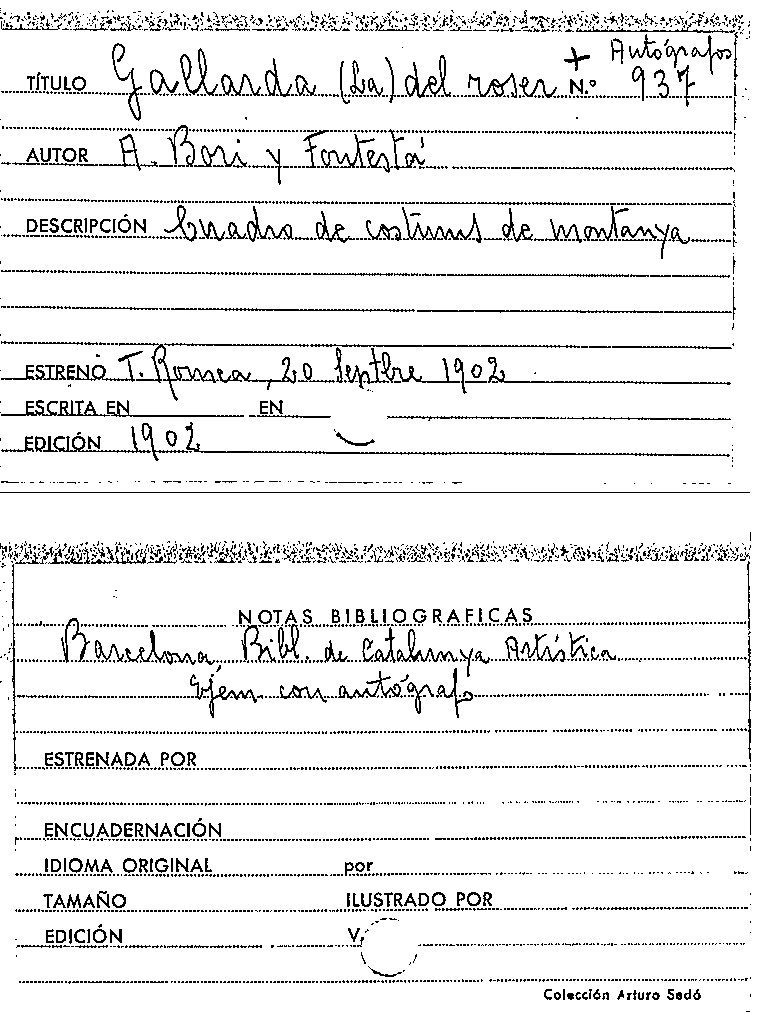 + Autógrafos
TÍTULO Gallarda (La) del roser N.º 937
AUTOR A. Bori y Fontestá
DESCRIPCIÓN Cuadro de costums de montanya
ESTRENO T. Romea, 20 Septbre 1902
ESCRITA EN EN
EDICIÓN 1902
NOTAS BIBLIOGRAFICAS
Barcelona, Bibl. de Catalunya Artística
Ejem. con autógrafo
ESTRENADA POR
ENCUADERNACIÓN
IDIOMA ORIGINAL por
TAMAÑO ILUSTRADO POR
EDICIÓN V.
Colección Arturo Sedó